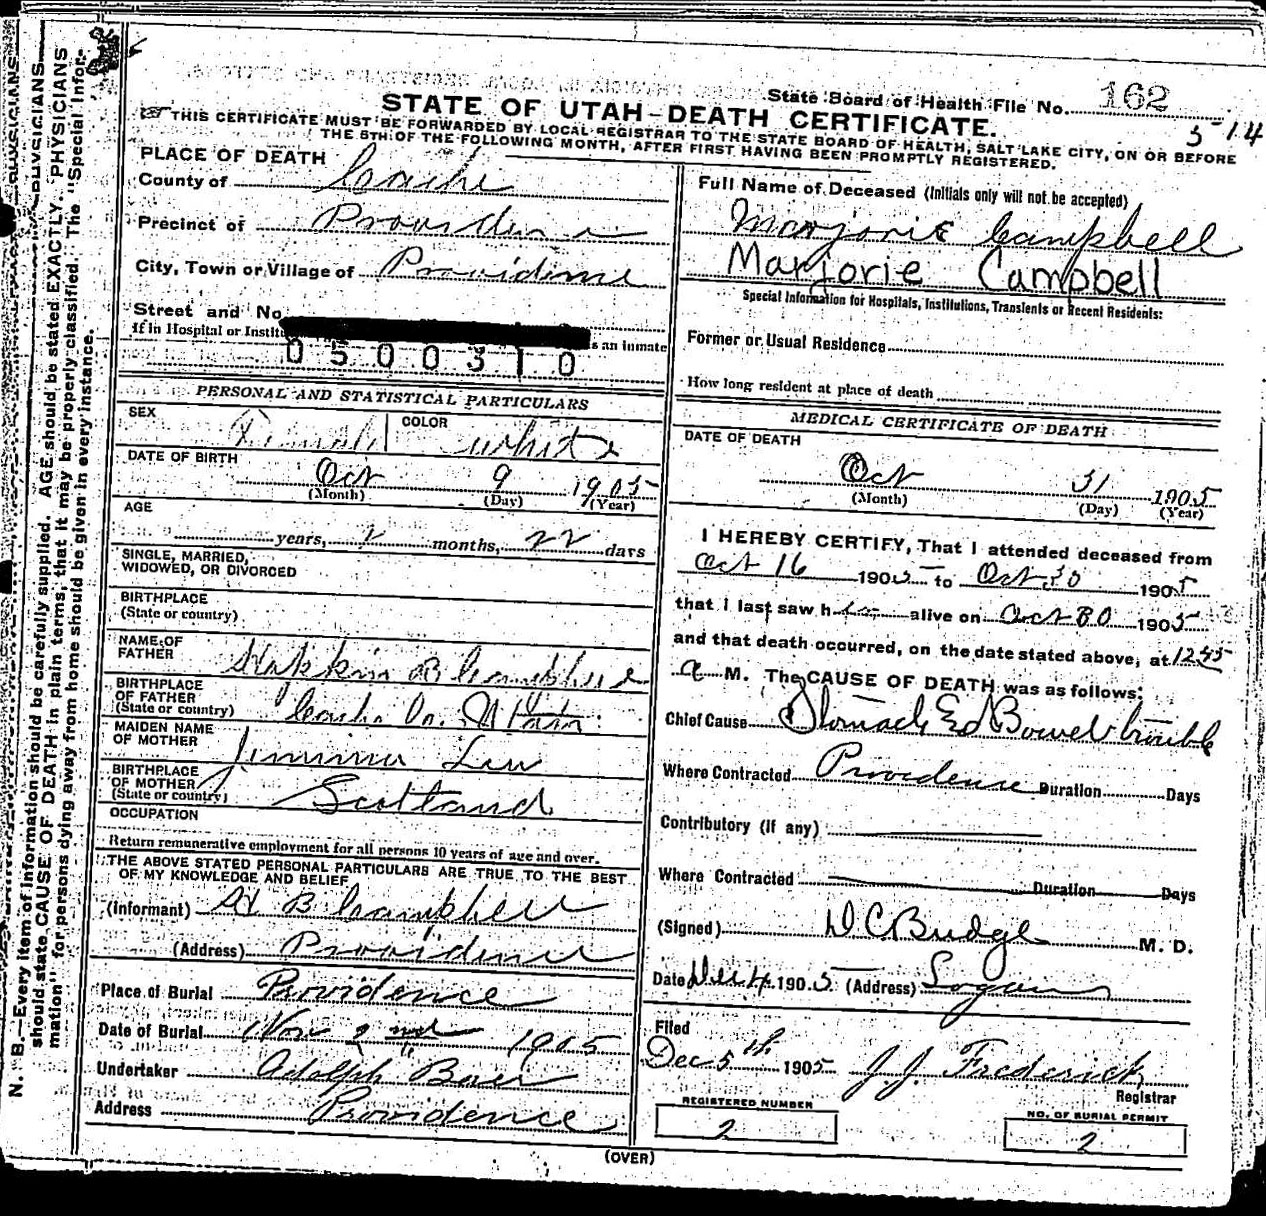 State Board of Health File No. 162
5-14
STATE OF UTAH—DEATH CERTIFICATE.
THIS CERTIFICATE MUST BE FORWARDED BY LOCAL REGISTRAR TO THE STATE BOARD OF HEALTH, SALT LAKE CITY, ON OR BEFORE
THE 5TH OF THE FOLLOWING MONTH, AFTER FIRST HAVING BEEN PROMPTLY REGISTERED.
PLACE OF DEATH
County of Cache
Precinct of Providence
City, Town or Village of Providence
Street and No.
If in Hospital or Institu s an inmate
0500310
PERSONAL AND STATISTICAL PARTICULARS
SEX Female COLOR white
DATE OF BIRTH
Oct 9 1905
(Month) (Day) (Year)
AGE
years, 2 months, 22 days
SINGLE, MARRIED,
WIDOWED, OR DIVORCED
BIRTHPLACE
(State or country)
NAME OF
FATHER
B Campbell
BIRTHPLACE
OF FATHER
(State or country) Cache Co. Utah
MAIDEN NAME
OF MOTHER
BIRTHPLACE
OF MOTHER
(State or country) Scotland
OCCUPATION
Return remunerative employment for all persons 10 years of age and over.
THE ABOVE STATED PERSONAL PARTICULARS ARE TRUE TO THE BEST
OF MY KNOWLEDGE AND BELIEF
(Informant) B Campbell
(Address) Providence
Place of Burial Providence
Date of Burial Nov 2nd 1905
Undertaker Adolph Baer
Address Providence
Full Name of Deceased (Initials only will not be accepted)
Marjorie Campbell
Marjorie Campbell
Special Information for Hospitals, Institutions, Transients or Recent Residents:
Former or Usual Residence
How long resident at place of death
MEDICAL CERTIFICATE OF DEATH
DATE OF DEATH
Oct 31 1905
(Month) (Day) (Year)
I HEREBY CERTIFY, That I attended deceased from
Oct 16 1905 to Oct 30 1905
that I last saw her alive on Oct 30 1905
and that death occurred, on the date stated above, at 12 55
a M. The CAUSE OF DEATH was as follows:
Chief Cause Stomach and Bowel trouble
Where Contracted Providence Duration Days
Contributory (if any)
Where Contracted Duration Days
(Signed) D C Budge M. D.
Date Dec 4 1905 (Address) Logan
Filed
Dec 5th 1905 J. J. Frederick
Registrar
REGISTERED NUMBER
2
NO. OF BURIAL PERMIT
2
(OVER)
N. B.—Every item of information should be carefully supplied. AGE should be stated EXACTLY. PHYSICIANS
should state CAUSE OF DEATH in plain terms, that it may be properly classified. The "Special Infor-
mation" for persons dying away from home should be given in every instance.